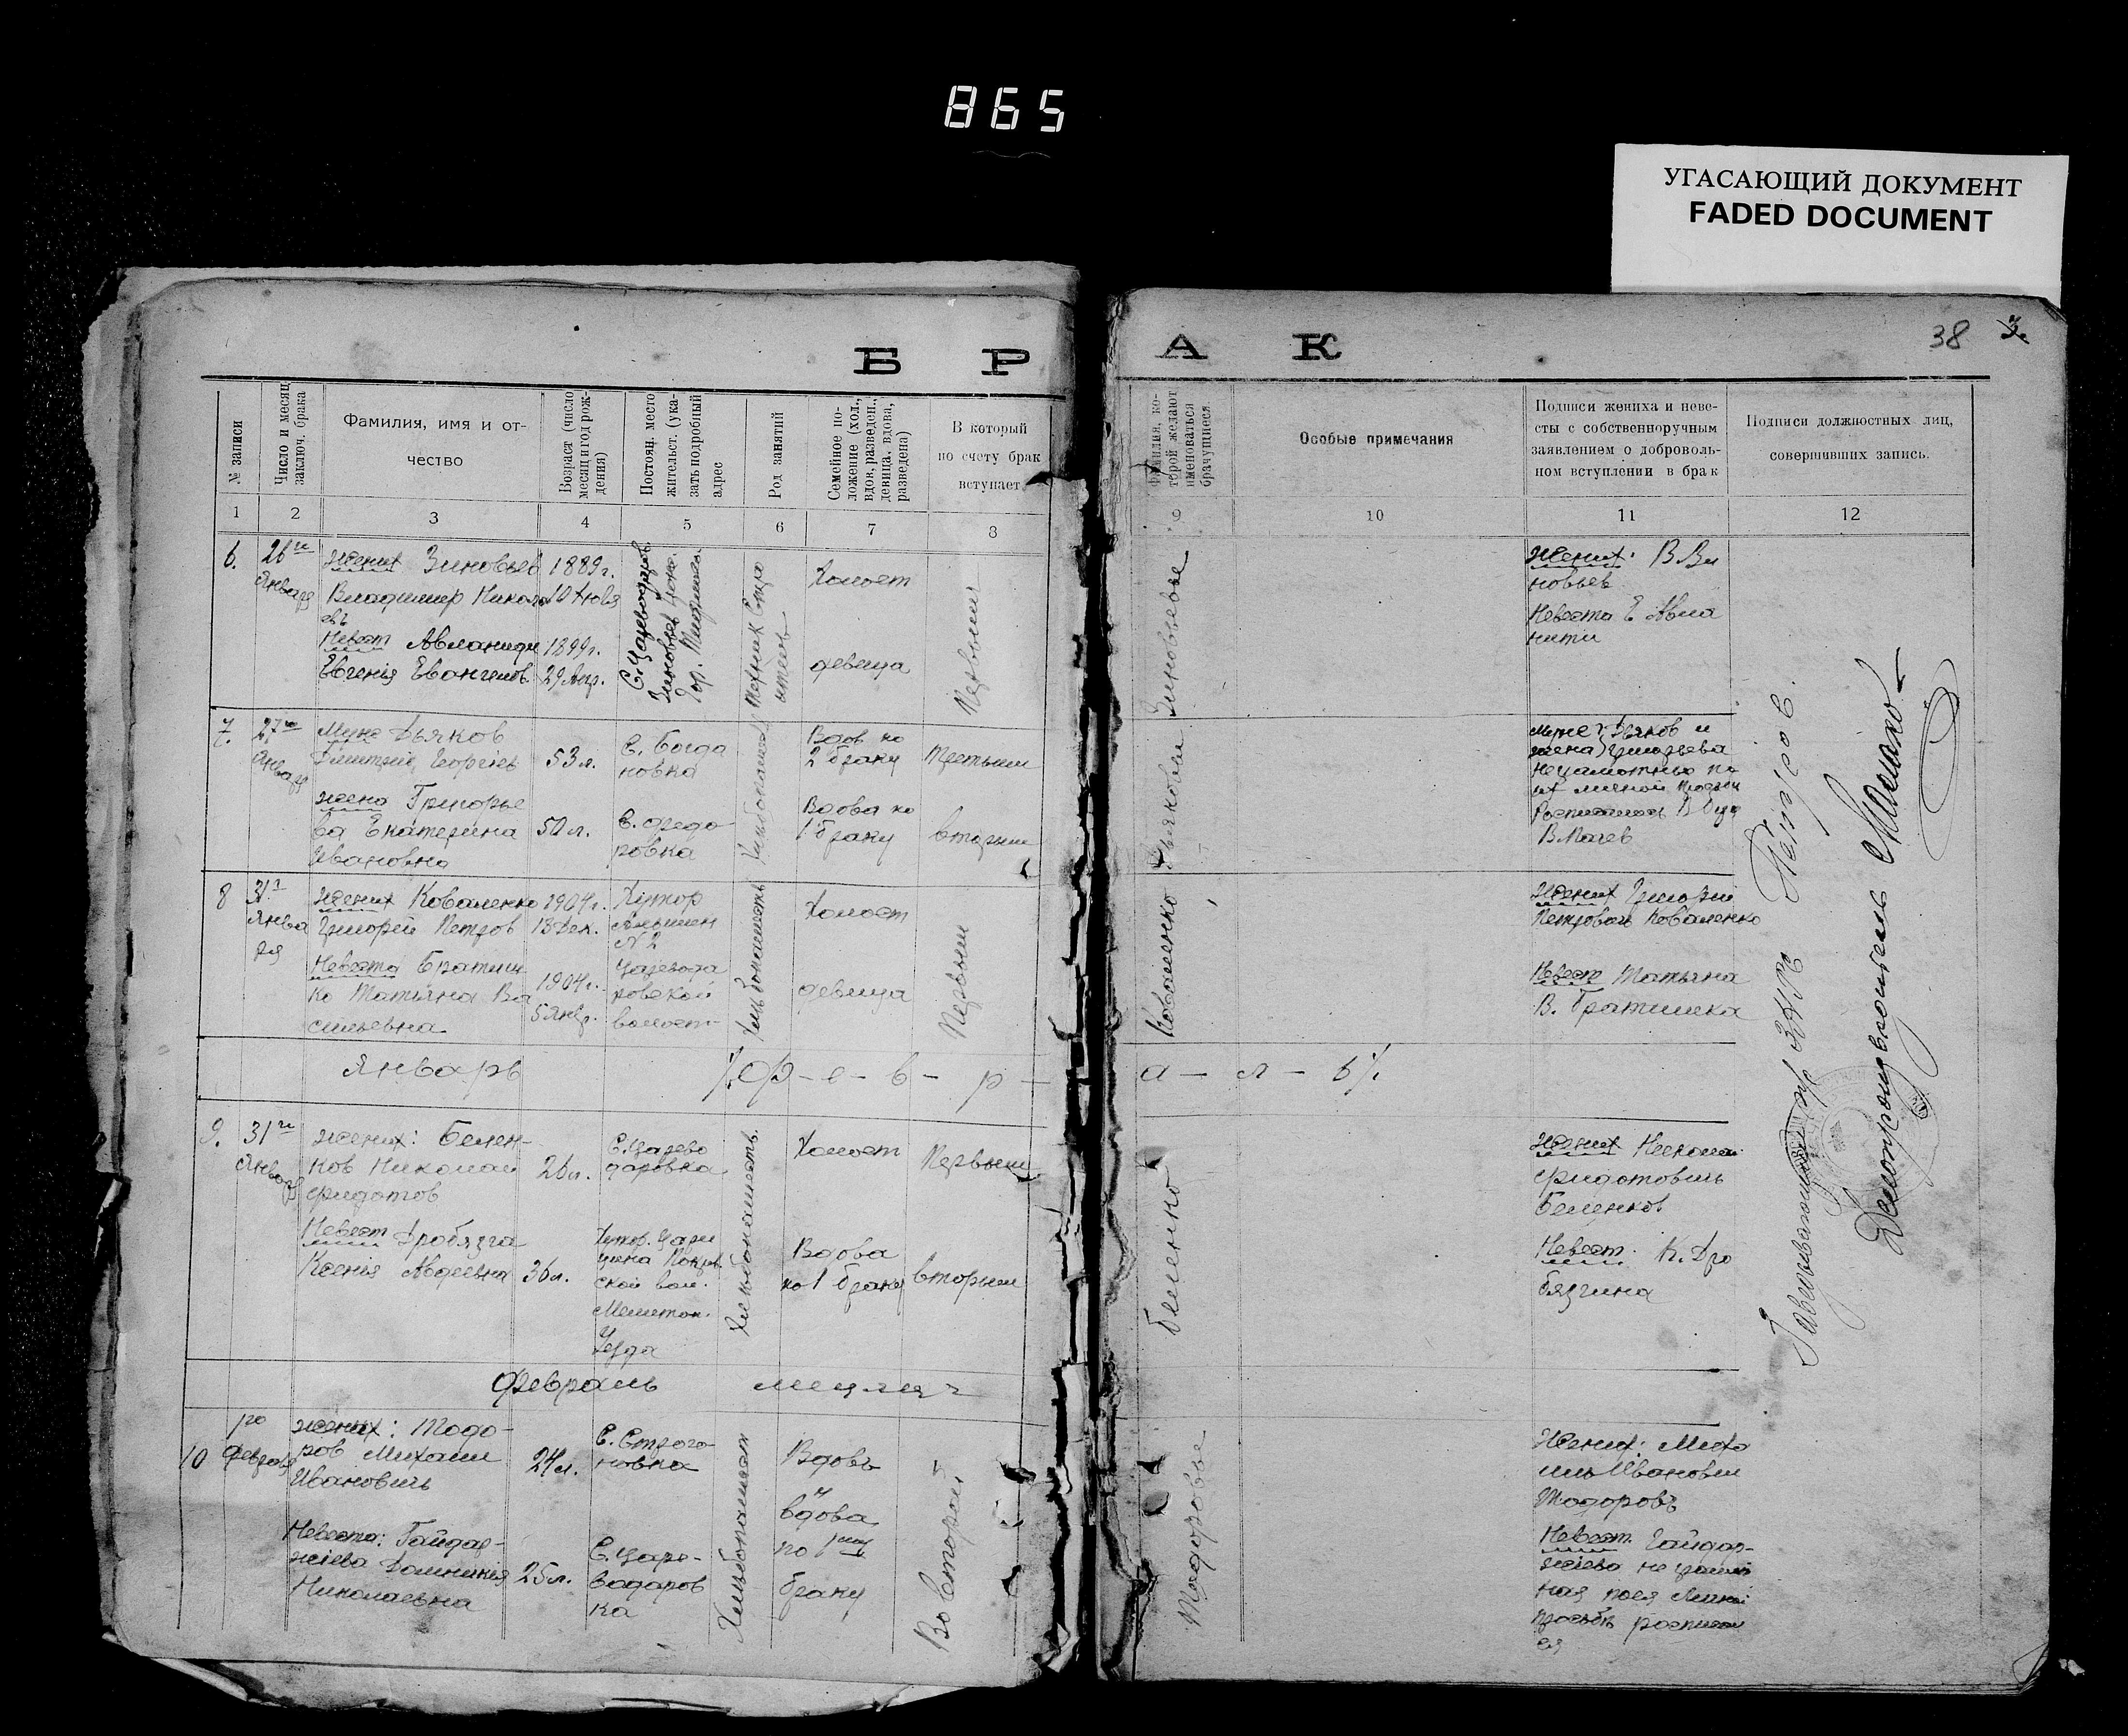 865
УГАСАЮЩИЙ ДОКУМЕНТ
FADED DOCUMENT
38 3.
Б Р А К
№ записи
Число и месяц
заключ. брака
Фамилия, имя и от-
чество
Возраст (число
месяц и год рож-
дения)
Постоян. место
жительст. (ука-
зать подробный
адрес
Род занятий
Семейное по-
ложение (хол.,
вдов. разведен.,
девица, вдова,
разведена)
В который
по счету брак
вступает
Фамилия, ко-
торой желают
именоваться
брачущиеся.
Особые примечания
Подписи жениха и неве-
сты с собственноручным
заявлением о доброволь-
ном вступлении в брак
Подписи должностных лиц,
совершивших запись.
1 2 3 4 5 6 7 8 9 10 11 12
6.
26го
Января
жених Зиновьев
Владимир Никола
евъ
Невест Авланиди
Евгенiя Евангелов.
1889 г.
10 Июля
1899 г.
29 Апр.
С. Цареводаров.
Зиновьев
гор.
Холост
девица
Первыми
Зиновьевые
Жених: В Зи
новьев
Невеста Е Авла
нити
7.
27го
Января
Муж Дьяков
Дмитрий Георгiев
жена Григорье
ва Екатерина
Ивановна
53 л.
50 л.
С. Богда
новка
С. Федо-
ровка
Хлебопашец
Вдов по
2 браку
Вдова по
1 браку
третьим
вторым
Дьяковы
муж: Дьяков и
жена) Григорьева
неграмотные по
их личной просьб
Росписался В
8
31го
Янва
ря
жених Коваленко
Григорий Петров
Невеста Братиш
ко Татьяна Ва
сильевна
1904 г.
13 Дек.
1904 г.
5 Янвр.
Хутор
№ 2
Царевода
ровской
волост-
Хлебопашеств
Холост
девица
Первым
Коваленко
Жених Григорий
Петрович Коваленко
Невест Татьяна
В. Братишка
Январь
%Ф – е – в – р – а – л – ь%
9.
31го
Января
жених: Белен-
ков Николай
Филатов
Невест Дробязга
Ксения Авдеевна
26 л.
36 л.
С. Царево
даровка
Хутор. Цари
цина Покров
ской вол.
Мелитоп.
Уезда
Хлебопашеств.
Холост
Вдова
по 1 браку
Первым
вторым
Беленко
Жених Николай
Филатович
Беленков
Невест. К. Дро
бязгина
Февраль месяц
10
го
Февраля
жених: Тодо-
ров Михаил
Ивановичъ
Невеста: Гайдар-
жiева Домникия
Николаевна
24 л.
25 л.
С. Строга-
новка
С. Царе-
водаров
ка
Хлебопашест
Вдовъ
и
вдова
по 1му
браку
Во Второй
Тодоровые
Жених: Миха
илъ Иванович
Тодоровъ
Невест. Гайдар-
жiева неграмот
ная по ея личной
просьбе росписал
ся
Заведывающий ЗАГС Петров.
Делопроизводитель